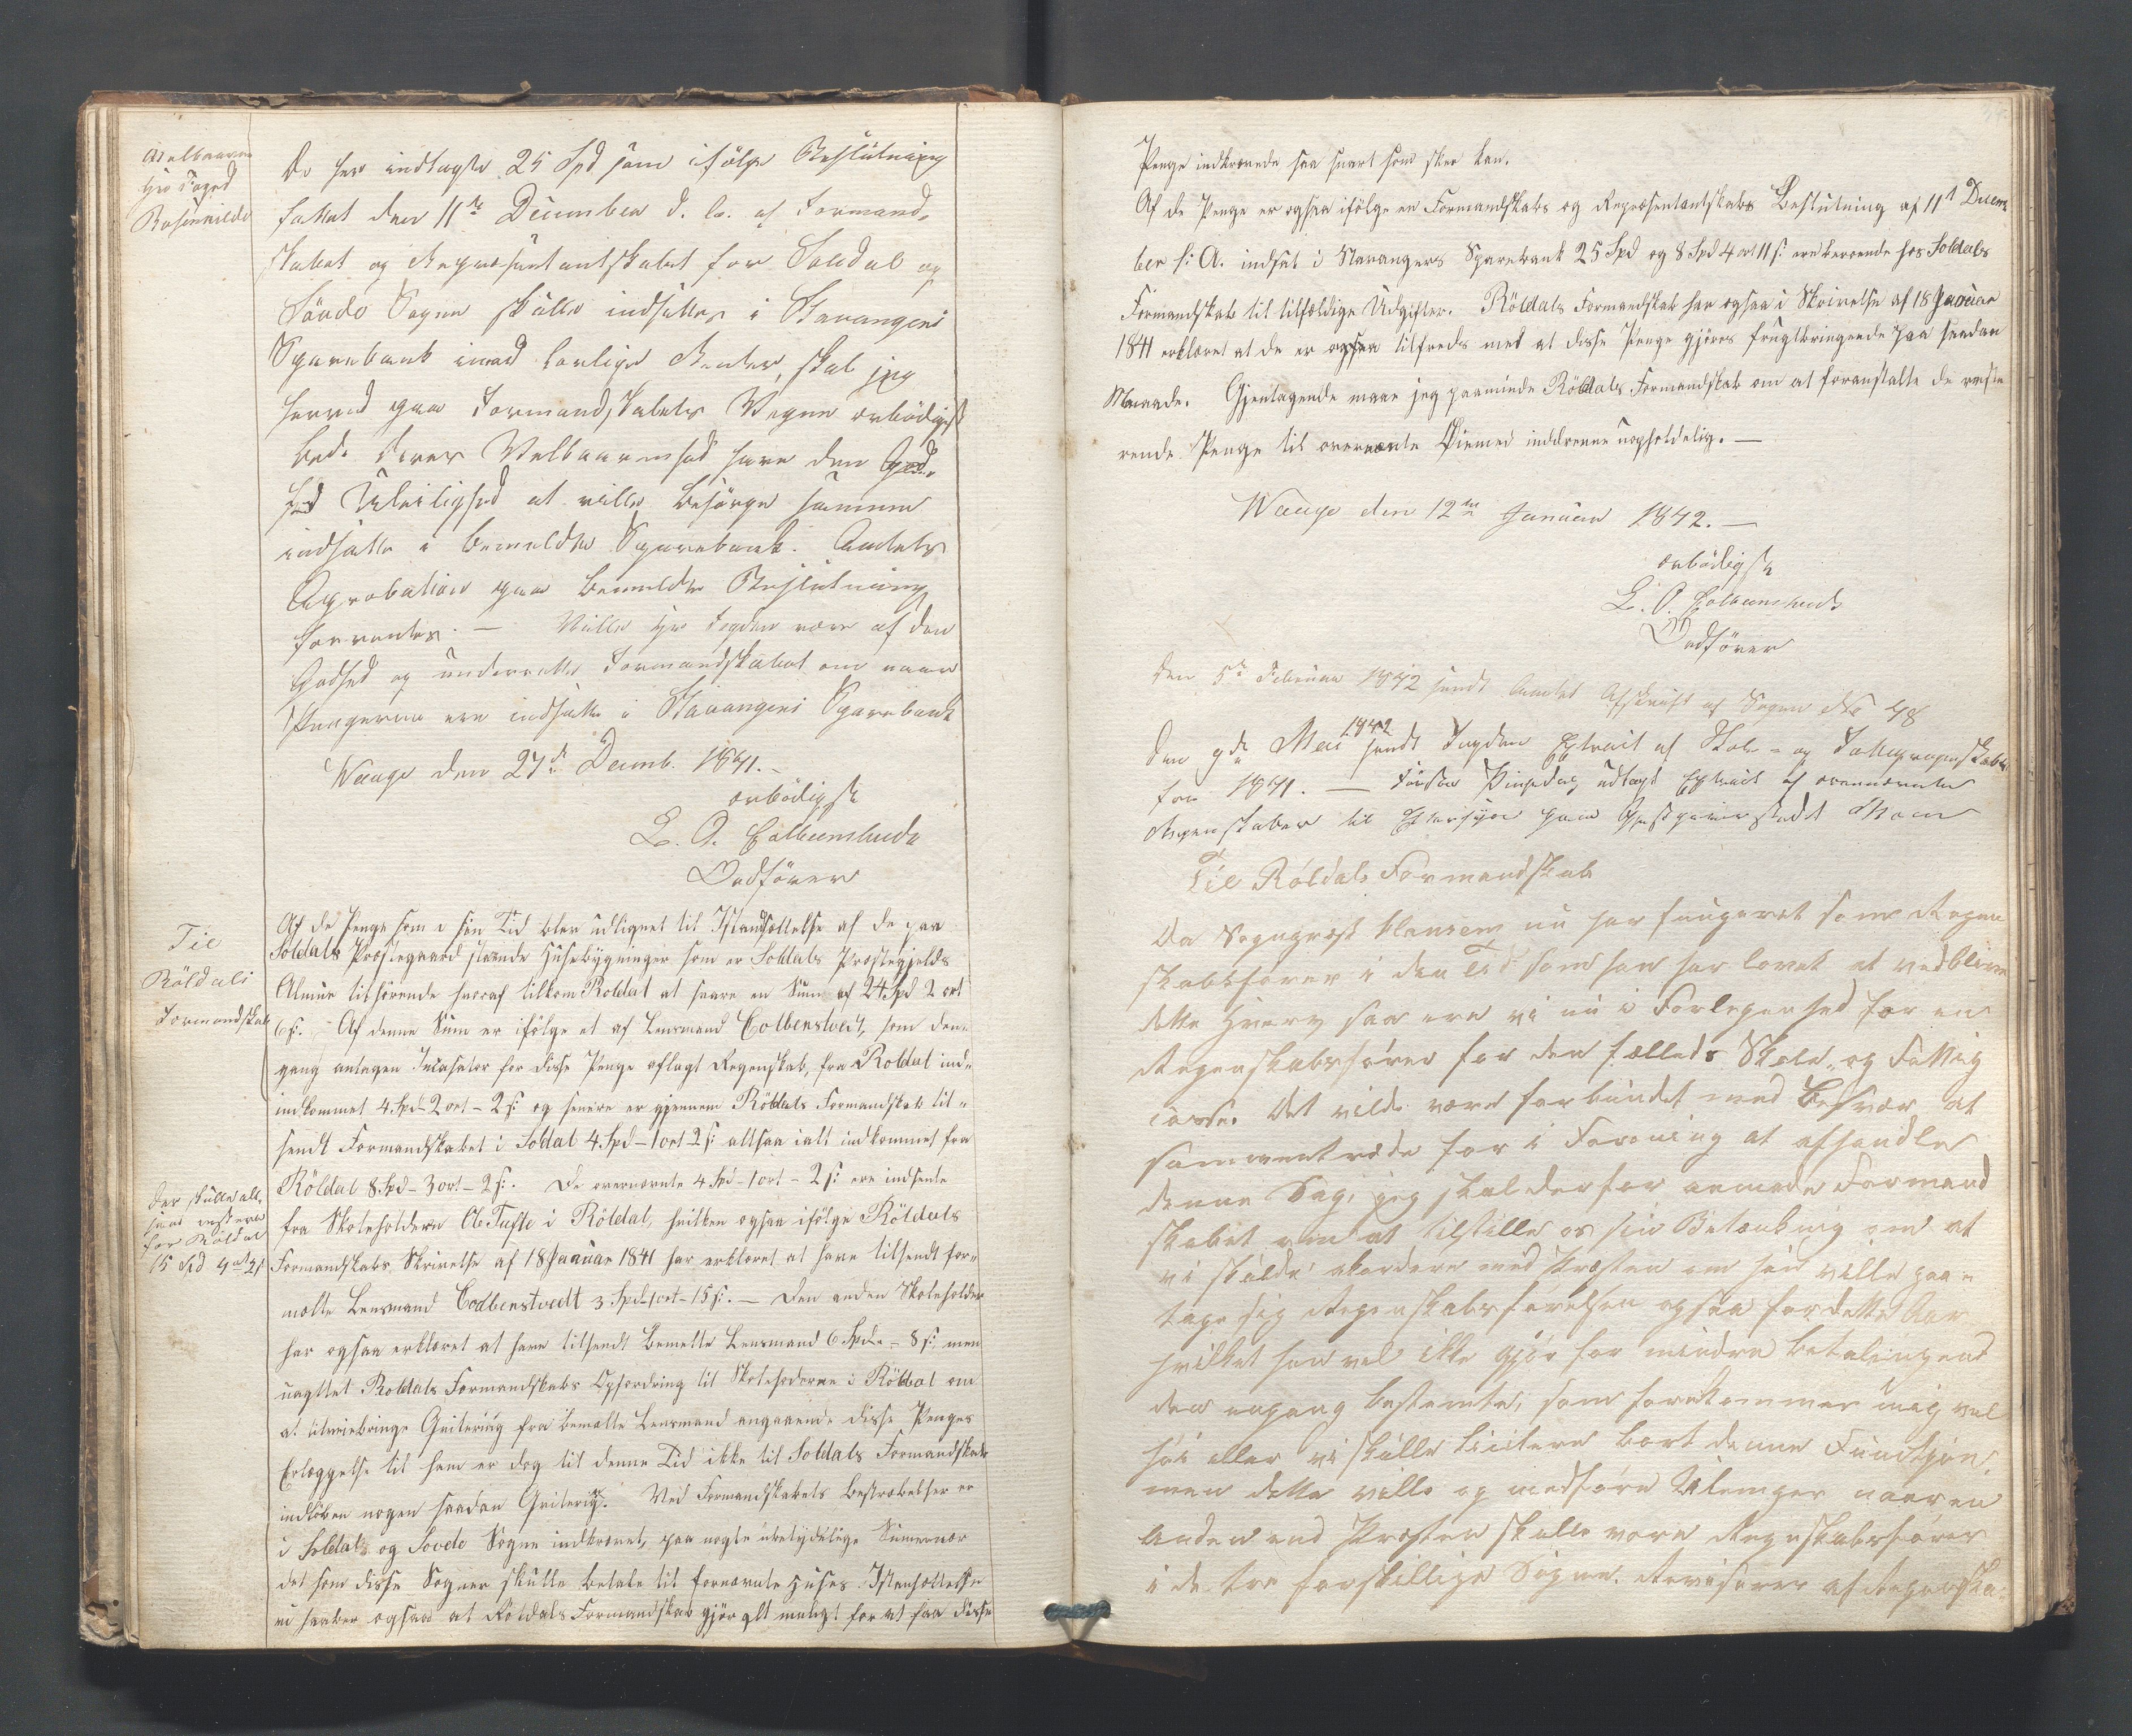 Velbaarne
Hr Foged
Rosenkilde
De her indlagte 25 Spd som ifölge Beslutning
fattet den 11te December d. A. af Formand-
skabet og Repræsentantskabet for Soldal og
Söndo Sogne skulle indsættes i Stavangers
Sparebank imod lovlige Renter, skal jeg
herved paa Formandskabets Vegne ærbödigst
bede Deres Velbaarenhed have den God-
hed at ville besörge samme
indsatte i bemeldte Sparebank. Amtets
Approbation paa bemeldte Beslutning
forventes. — Ville Hr Fogden være af den
Godhed og underrette Formandskabet om naar
Pengerne ere indsatte i Stavangers Sparebank
Waage den 27de Decemb. 1841.
ærbödigst
L. O. Colbeinstvedt
Ordförer
Til
Röldals
Formandskab
Af de Penge som i sin Tid blev udlignet til Istandsættelse af de paa
Soldals Præstegaard staaende Husebygninger som er Soldals Præstegjelds
Almue tilhörende hvoraf tilkom Roldal at svare en Sum af 24 Spd 2 ort
6 s. – Af denne Sum er ifölge et af Lensmand Colbenstvedt, som den-
gang antagen Incasator for disse Penge aflagt Regenskab, fra Roldal ind-
indkommet 4 Spd 2 ort – 2 s: og senere er gjennem Röldals Formandskab til-
sendt Formandskabet i Soldal 4 Spd – 1 ort 2 s: altsaa ialt indkommet fra
Röldal 8 Spd – 3 ort – 2 s:. De overnævnte 4 Spd – 1 ort – 2 s: ere indsente
Der skulle alt-
saa restere
for Röldal
15 Spd 4 ort 4 s
fra Skoleholderen Ole Tufte i Röldal, hvilken ogsaa ifölge Röldals
Formandskabs Skrivelse af 18 Januar 1841 har erklæret at have tilsendt for-
mælte Lensmand Codbenstvedt 3 Spd – 1 ort – 15 s:. — Den anden Skoleholder
har ogsaa erklæret at have tilsendt bemelte Lensmand 6 Spd – – 8 s: men
uagttet Roldals Formandskabs Opfordring til Skoleholderne i Röldal om
at tilveiebringe Qvitering fra bemælte Lensmand angaaende disse Penges
Erlæggelse til ham er dog til denne Tid ikke til Soldals Formandskab
indlöben nogen saadan Qvitering. Ved Formandskabets Bestræbelser er
i Soldals og Sovde Sogne indkrævet, paa nogle ubetydelige Summer nær
det som disse Sogner skulle betale til fornævnte Huses Istansættelse
vi haaber ogsaa at Röldals Formandskab gjör alt muligt for at faa disse
Penge indkrævede saa snart som skee kan.
Af de Penge er ogsaa ifölge en Formandskabs og Repræsentantskabs Beslutning af 11t Decem-
ber f: A. indsat i Stavangers Sparebank 25 Spd og 8 Spd 4 ort 11 s: ere beroende hos Soldals
Formandskab til tilfældige Udgifter. Röldals Formandskab har ogsaa i Skrivelse af 18 Januar
1841 erklæret at de er ogsaa tilfreds med at disse Penge gjöres frugtbringende paa saadan
Maaade. Gjentagende maae jeg paaminde Röldals Formandskab om at foranstalte de reste-
rende Penge til overnævnte Öiemed inddrevne uopholdelig. —
Waage den 12te Januar 1842. —
ærbödigst
L. O. Colbeinstvedt
Ordförer
Den 5te Februar 1842 sendt Amtet Afskrift af Sagen No 48
Den 9de Mai 1842 sendt Fogden Extrait af Skole- og Fattigregenskaber
for 1841. — udlagt Extrait af overnævnte
Regenskaber til Eftersyn paa Gjestgiverstedet
Til Röldals Formandskab
Da Sognepræst Clausen nu har fungeret som Regen-
skabsförer i den Tid som han har lovet at vedblive
dette Hverv saa ere vi nu i Forlegenhed for en
Regenskabsförer for den fælleds Skole- og Fattig-
casse. Det vilde være forbundet med Besvær at
sammentræde for i Forening at afhandle
denne Sag, jeg skal derfor anmode Formand-
skabet om at tilstille os sin Betænkning om at
vi skulde akordere med Præsten om han ville paa-
tage sig Regenskabsförelsen ogsaa for dette Aar
hvilket han vel ikke gjör for mindre Betaling end
den engang bestemte, som forekommer mig vel
höi eller vi skulle licitere bort denne Funktjon,
men dette ville og medföre Ulemper naar en
Anden end Præsten skulle være Regnskabsförer
i de tre forskillige Sogne. Revisorer af Regenska-